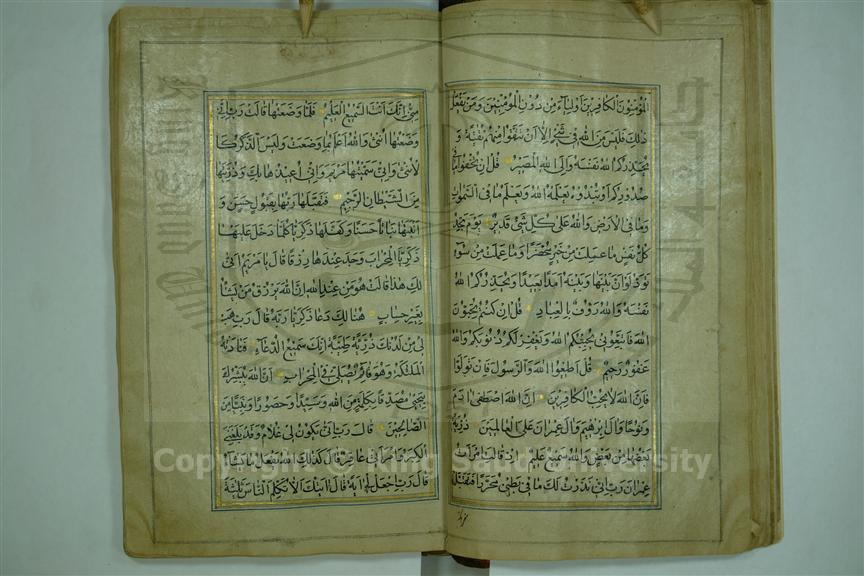 المؤمنون الكافرين اولياء من دون المؤمنين ومن يفعل
ذلك فليس من الله في شئ الا ان تتقوا منهم تقية و
يحذركم الله نفسه والى الله المصير قل ان تخفوا ما في
صدوركم او تبدوه يعلمه الله ويعلم ما في السموات
وما في الارض والله على كل شئ قدير يوم تجد
كل نفس ما عملت من خير محضرا وما عملت من سوء
تود لو ان بينها وبينه امدا بعيدا ويحذركم الله
نفسه والله رؤف بالعباد قل ان كنتم تحبون
الله فاتبعوني يحببكم الله ويغفر لكم ذنوبكم والله
غفور رحيم قل اطيعوا الله والرسول فان تولوا
فان الله لا يحب الكافرين ان الله اصطفى ادم
ونوحا وال ابرهيم وال عمران على العالمين ذرية
بعضها من بعض والله سميع عليم اذ قالت امرأت
عمران رب اني نذرت لك ما في بطني محررا فتقبل
مني انك انت السميع العليم فلما وضعتها قالت رب اني
وضعتها انثى والله اعلم بما وضعت وليس الذكر كا
لانثى واني سميتها مريم واني اعيذها بك وذريتها
من الشيطان الرجيم فتقبلها ربها بقبول حسن و
انبتها نباتا حسنا وكفلها زكريا كلما دخل عليها
زكريا المحراب وجد عندها رزقا قال يا مريم انى
لك هذا قالت هو من عند الله ان الله يرزق من يشاء
بغير حساب هنالك دعا زكريا ربه قال رب هب
لي من لدنك ذرية طيبة انك سميع الدعاء فنادته
الملئكة وهو قائم يصلي في المحراب ان الله يبشرك
بيحيى مصدقا بكلمة من الله وسيدا وحصورا ونبيا من
الصالحين قال رب انى يكون لي غلام وقد بلغني
الكبر وامرأتي عاقر قال كذلك الله يفعل ما يشاء
قال رب اجعل لي اية قال ايتك الا تكلم الناس ثلثة
Copyright © King Saud University